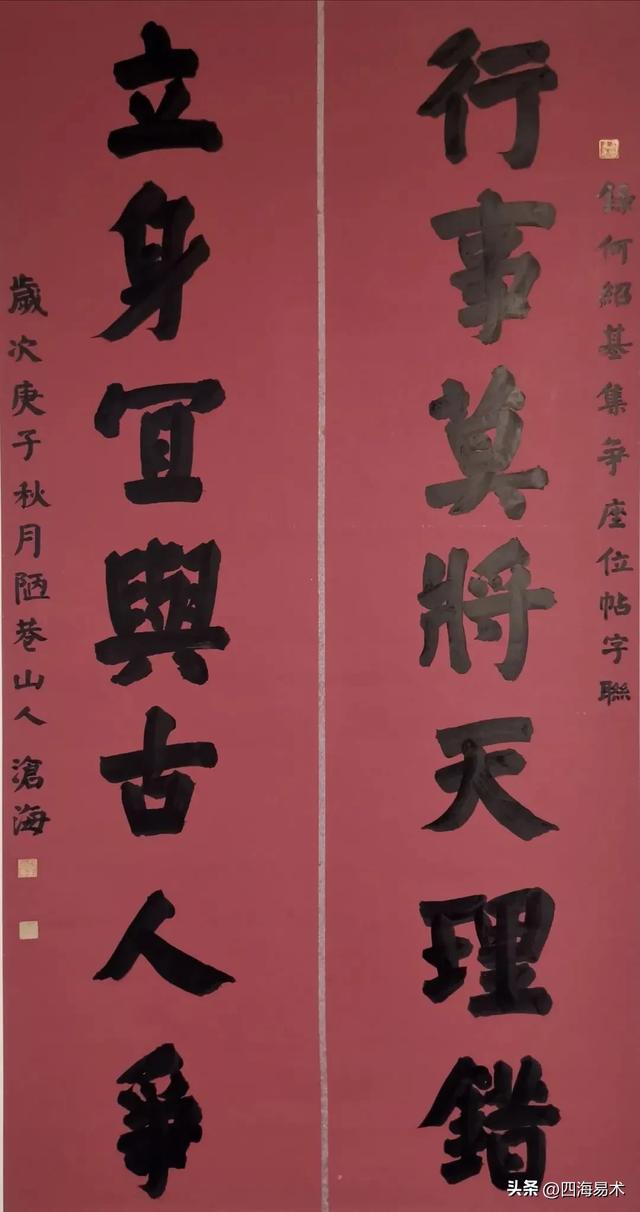 錄何紹基集爭座位帖字聯
行事莫將天理錯
立身冝與古人爭
歲次庚子秋月陋巷山人滄海
头条 @四海易术